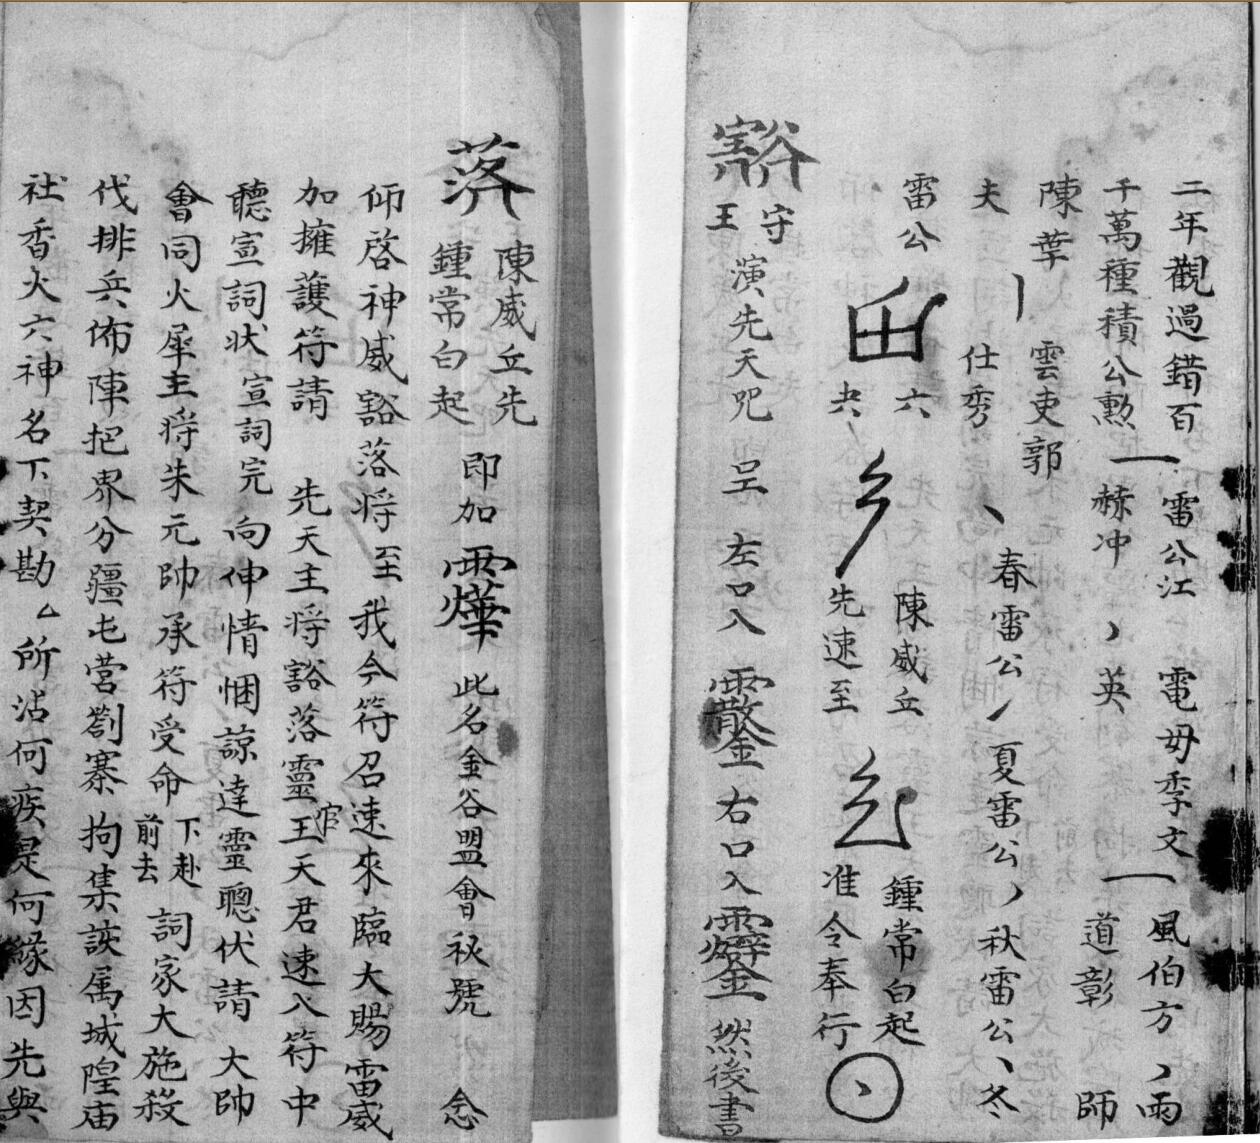 二年觀過錯百一雷公江 電毋季文一風伯方丶雨
千萬種積公勲 赫冲丶英 道彰 師
陳華丨雲吏郭丶春雷公丶夏雷公丶秋雷公丶冬
夫 仕秀
雷公 六 陳威丘 鍾常白起
夬 先速至 准令奉行
豁
守
王
演先天咒 呈 左口入 右口入 然後書
落
陳威丘先
鍾常白起
即加 此名金谷盟會秘號 念
仰啓神威豁落将至我今符召速來臨大賜雷威
加擁護符請 先天主将豁落靈官王天君速入符中
聽宣詞状宣詞完 向伸情悃諒達靈聰伏請 大帥
會同火犀主将朱元帥承符受命 下赴
前去 詞家大施殺
伐排兵佈陣把界分疆屯营劄寨拘集該属城隍庙
社香火六神名下契勘厶所沾何疾是何緣因先與